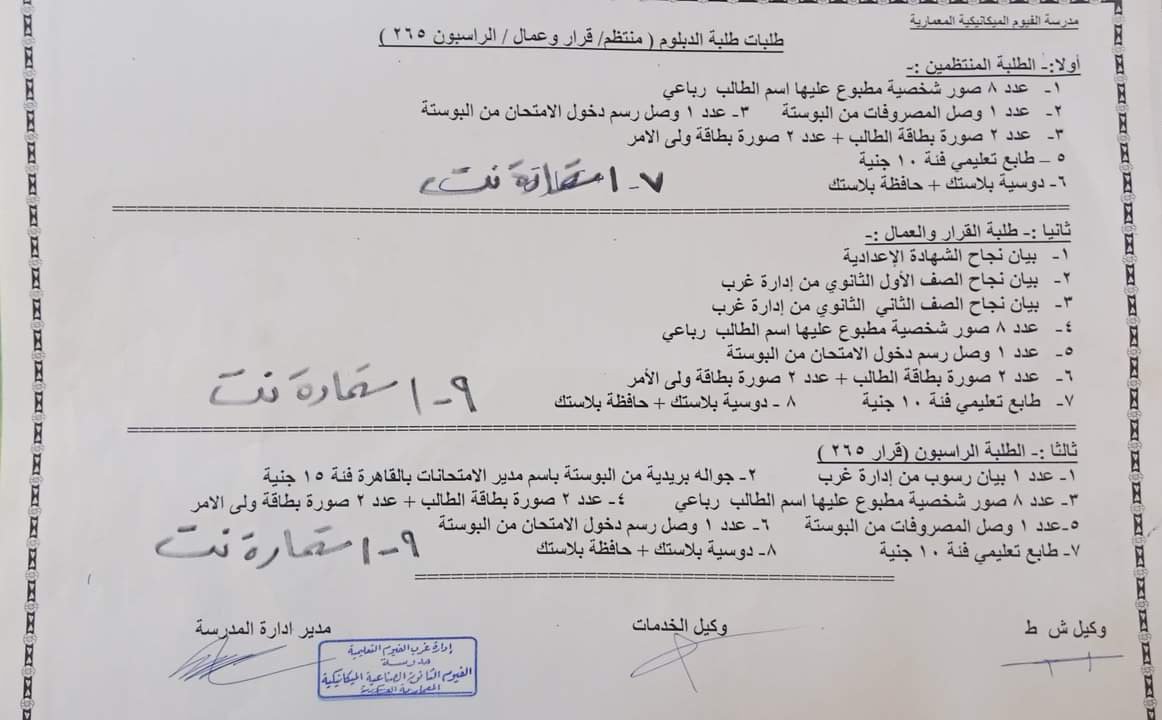 مدرسة الفيوم الميكانيكية المعمارية
طلبات طلبة الدبلوم ( منتظم/ قرار وعمال / الراسبون ٢٦٥ )
أولا:- الطلبة المنتظمين :-
١- عدد ٨ صور شخصية مطبوع عليها اسم الطالب رباعي
٢- عدد ١ وصل المصروفات من البوستة ٣- عدد ١ وصل رسم دخول الامتحان من البوستة
٣- عدد ٢ صورة بطاقة الطالب + عدد ٢ صورة بطاقة ولى الامر
٥ – طابع تعليمي فئة ١٠ جنية
٦- دوسية بلاستك + حافظة بلاستك ٧- ١ استمارة نت
ثانيا :- طلبة القرار والعمال :-
١- بيان نجاح الشهادة الإعدادية
٢- بيان نجاح الصف الأول الثانوي من إدارة غرب
٣- بيان نجاح الصف الثاني الثانوي من إدارة غرب
٤- عدد ٨ صور شخصية مطبوع عليها اسم الطالب رباعي
٥- عدد ١ وصل رسم دخول الامتحان من البوستة
٦- عدد ٢ صورة بطاقة الطالب + عدد ٢ صورة بطاقة ولى الأمر
٧- طابع تعليمي فئة ١٠ جنية ٨ - دوسية بلاستك + حافظة بلاستك ٩- ١ استمارة نت
ثالثا :- الطلبة الراسبون (قرار ٢٦٥ )
١- عدد ١ بيان رسوب من إدارة غرب ٢- جواله بريدية من البوستة باسم مدير الامتحانات بالقاهرة فئة ١٥ جنية
٣- عدد ٨ صور شخصية مطبوع عليها اسم الطالب رباعي ٤- عدد ٢ صورة بطاقة الطالب + عدد ٢ صورة بطاقة ولى الامر
٥-عدد ١ وصل المصروفات من البوستة ٦- عدد ١ وصل رسم دخول الامتحان من البوستة
٧- طابع تعليمي فئة ١٠ جنية ٨- دوسية بلاستك + حافظة بلاستك ٩- ١ استمارة نت
وكيل ش ط وكيل الخدمات مدير ادارة المدرسة
إدارة غرب الفيوم التعليمية
مدرسة
الفيوم الثانوية الصناعية الميكانيكية
المعمارية العسكرية